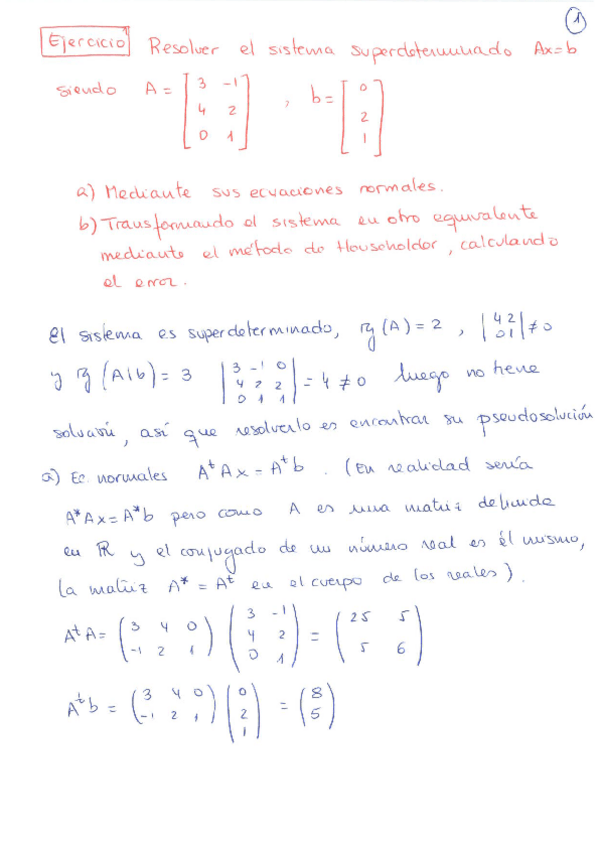 1
Ejercicio Resolver el sistema superdeterminado Ax=b
siendo A = [3 -1; 4 2; 0 1] , b = [0; 2; 1]
a) Mediante sus ecuaciones normales.
b) Transformando el sistema en otro equivalente
mediante el método de Householder, calculando
el error.
El sistema es superdeterminado, rg(A) = 2 , |4 2; 0 1| ≠ 0
y rg(A|b) = 3 |3 -1 0; 4 2 2; 0 1 1| = 4 ≠ 0 luego no tiene
solución, así que resolverlo es encontrar su pseudosolución
a) Ec. normales AᵗAx = Aᵗb . (En realidad sería
A*Ax = A*b pero como A es una matriz definida
en ℝ y el conjugado de un número real es él mismo,
la matriz A* = Aᵗ en el cuerpo de los reales).
AᵗA = (3 4 0; -1 2 1) (3 -1; 4 2; 0 1) = (25 5; 5 6)
Aᵗb = (3 4 0; -1 2 1) (0; 2; 1) = (8; 5)